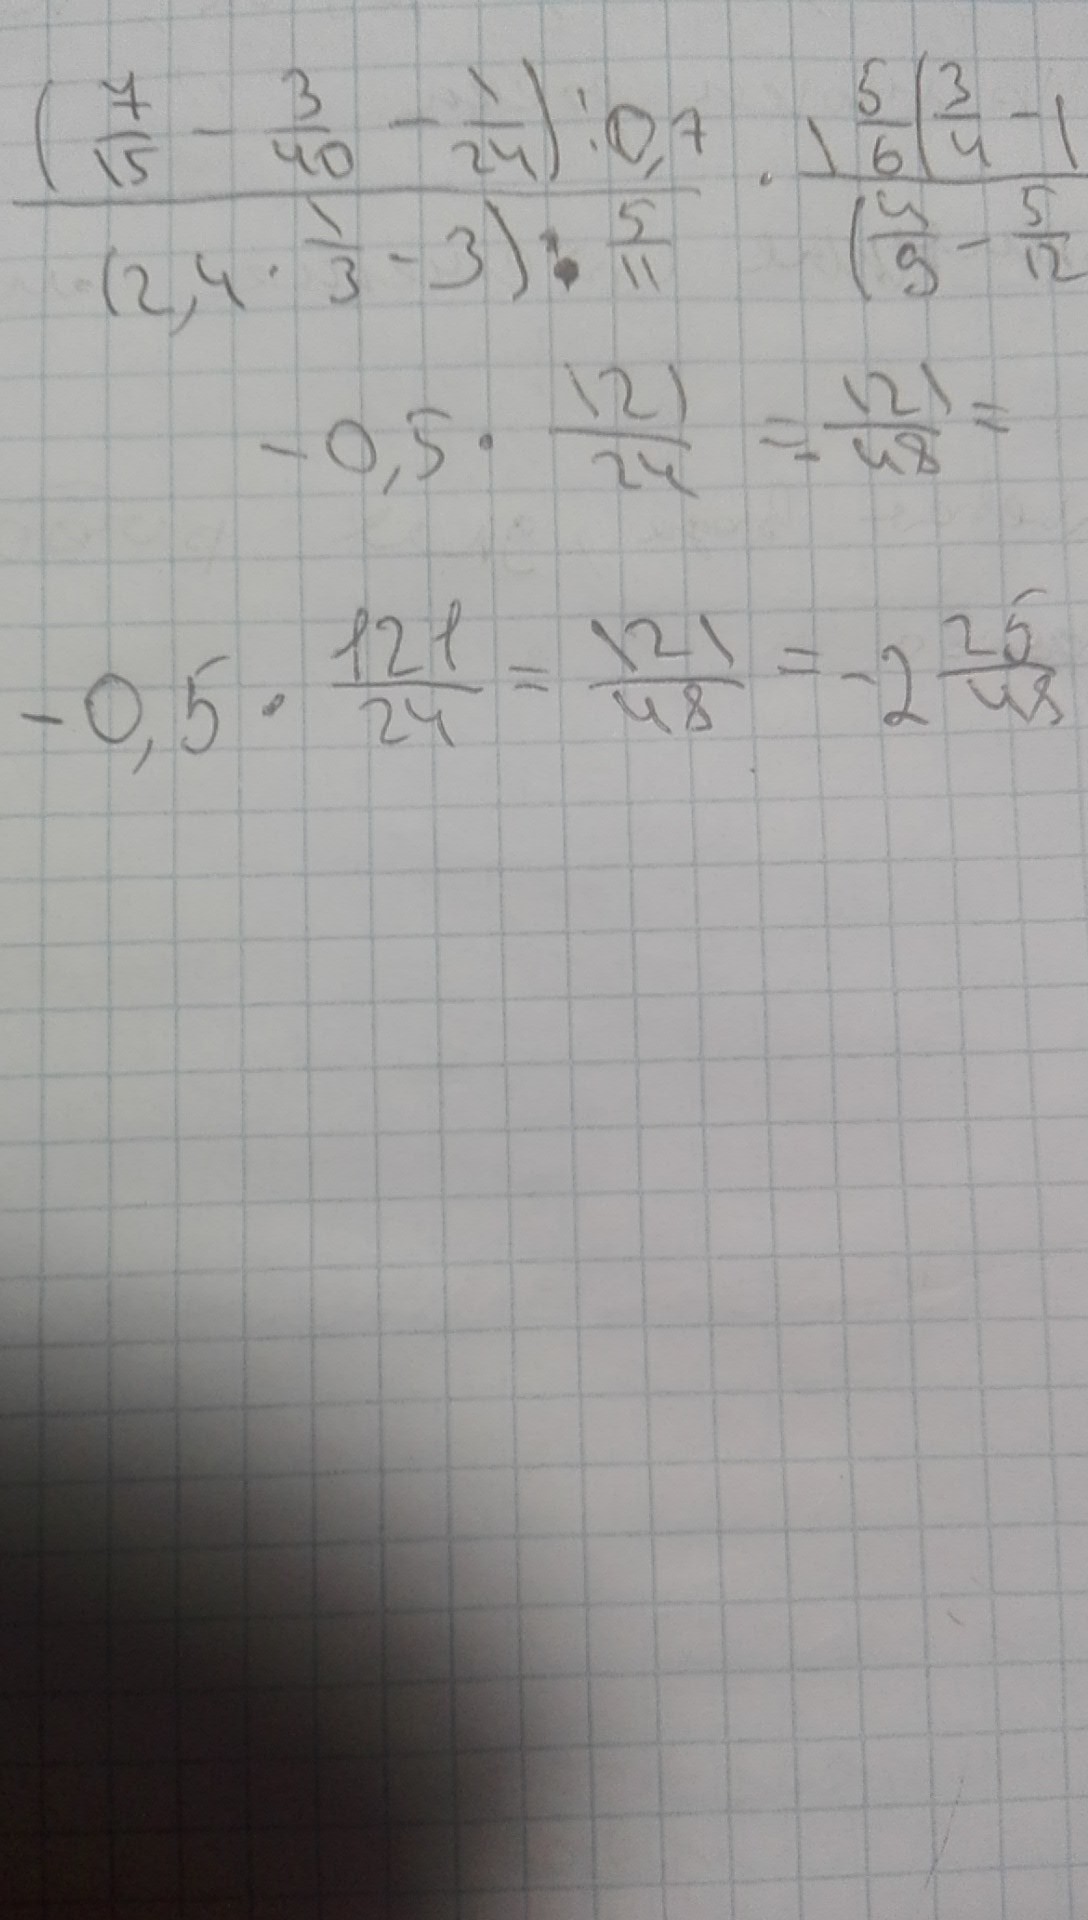 (7/15 - 3/40 - 1/24) : 0,7 · 1 5/6 (3/4 - 1
(2,4 · 1/3 - 3) · 5/11 (4/9 - 5/12
-0,5 · 121/24 = 121/48 =
-0,5 · 121/24 = 121/48 = -2 25/48